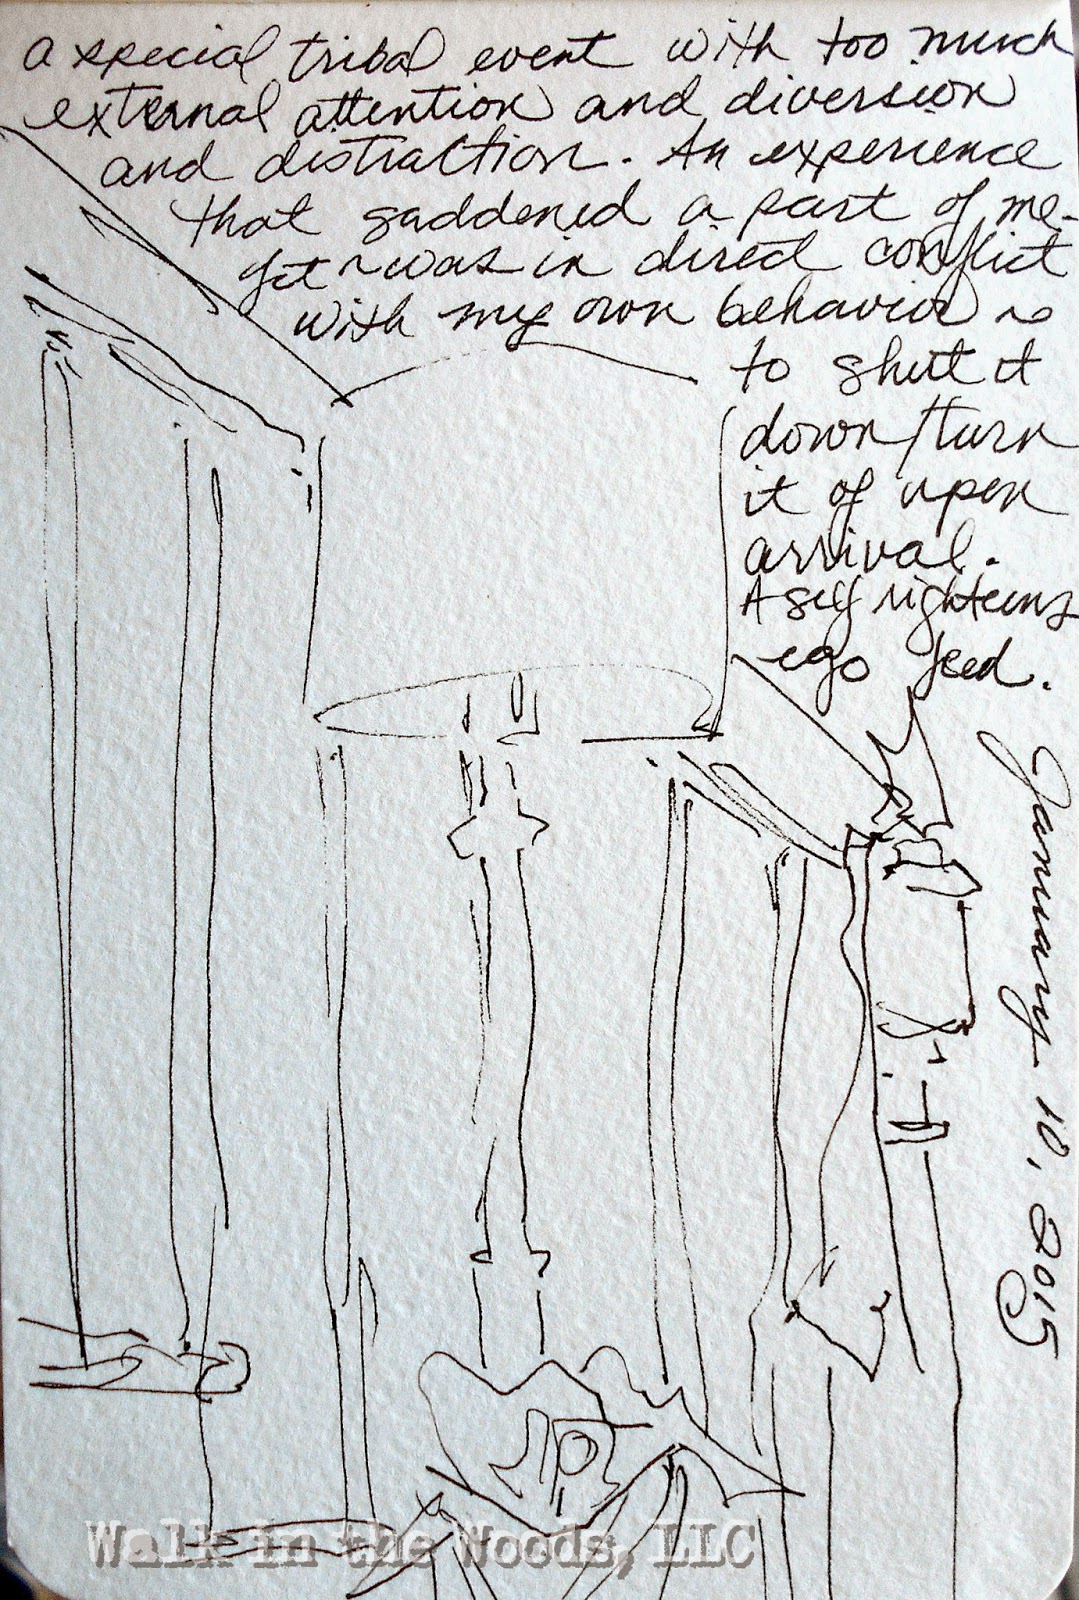 a special tribal event with too much
external attention and diversion
and distraction. An experience
that saddened a part of me -
yet ~ was in direct conflict
with my own behavior ~
to shut it
down/turn
it of upon
arrival.
A self righteous
ego feed.
January 10, 2015
Walk in the Woods, LLC